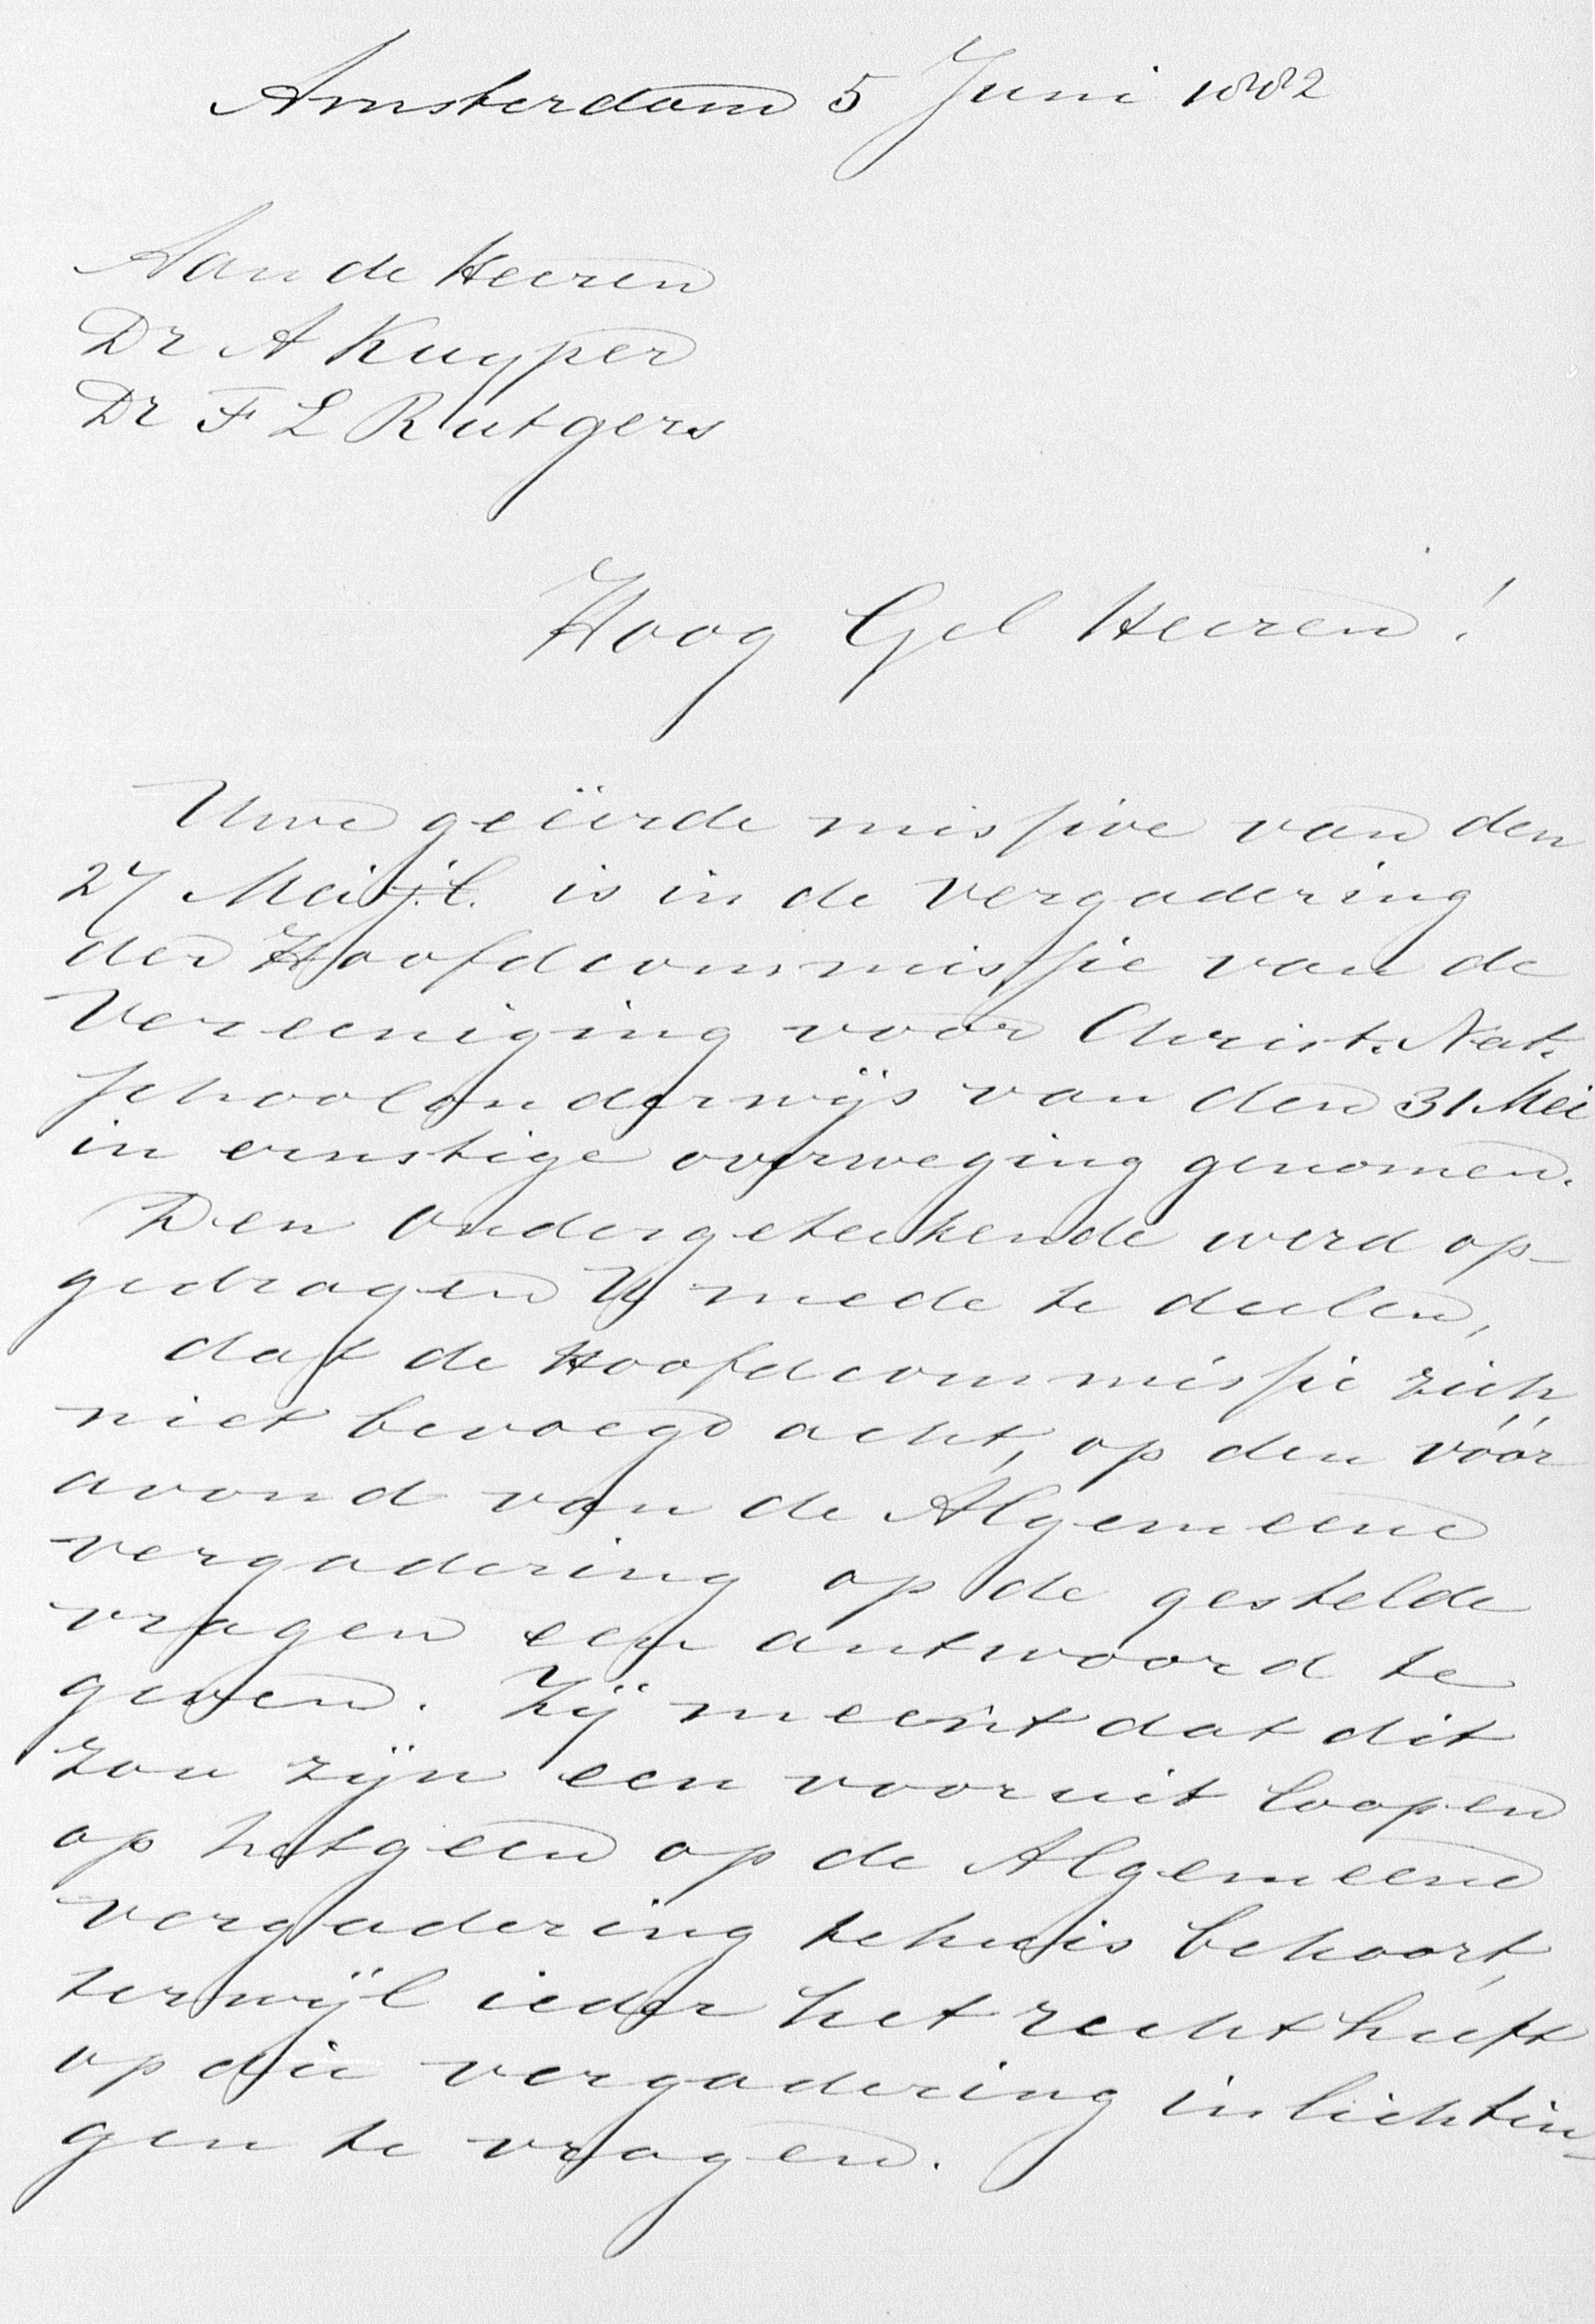 Amsterdam 5 Juni 1882
Aan de Heeren
Dr A Kuyper
Dr F L Rutgers
Hoog Gel Heeren!
Uwe geëerde missive van den
27 Mei j.l. is in de vergadering
der Hoofdcommissie van de
Vereeniging voor Christ. Nat.
schoolonderwijs van den 31 Mei
in ernstige overweging genomen.
Den ondergeteekende werd op-
gedragen U mede te deelen,
dat de Hoofdcommissie zich
niet bevoegd acht, op den vóór
avond van de Algemeene
vergadering op de gestelde
vragen een antwoord te
geven. Zij meent dat dit
zou zijn een vooruit loopen
op hetgeen op de Algemeene
vergadering tehuis behoort,
terwijl ieder het recht heeft
op die vergadering inlichtin-
gen te vragen.